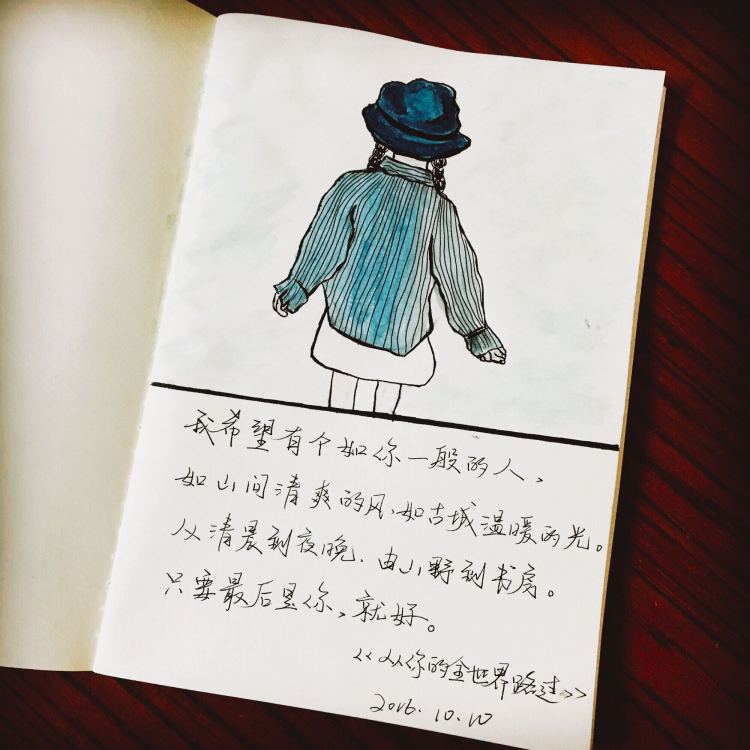 我希望有个如你一般的人,
如山间清爽的风,如古城温暖的光。
从清晨到夜晚,由山野到书房。
只要最后是你,就好。
<<从你的全世界路过>>
2016.10.10